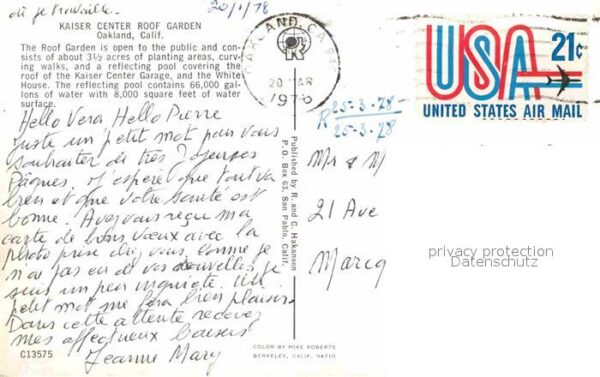 où je travaille.
20/3/78
KAISER CENTER ROOF GARDEN
Oakland, Calif.
The Roof Garden is open to the public and con-
sists of about 3½ acres of planting areas, curv-
ing walks, and a reflecting pool covering the
roof of the Kaiser Center Garage, and the White
House. The reflecting pool contains 66,000 gal-
lons of water with 8,000 square feet of water
surface.
Hello Vera Hello Pierre
juste un petit mot pour vous
souhaiter de très Joyeuses
Pâques. J'espère que tout va
bien et que votre santé est
bonne. Avez vous reçu ma
carte de bons vœux avec la
photo prise chez vous. Comme je
n'ai pas eu de vos nouvelles je
suis un peu inquiète. Un
petit mot me fera bien plaisir.
Dans cette attente recevez
mes affectueux baisers
Jeanne Mary
C13575
Published by R. and C. Hakanson
P. O. Box 63, San Pablo, Calif.
COLOR BY MIKE ROBERTS
BERKELEY, CALIF. 94710
OAKLAND, CA
20 MAR
1978
USA 21c
UNITED STATES AIR MAIL
R 25-3-78
25-3-78
Mr & M
21 Ave
Marcq
privacy protection
Datenschutz